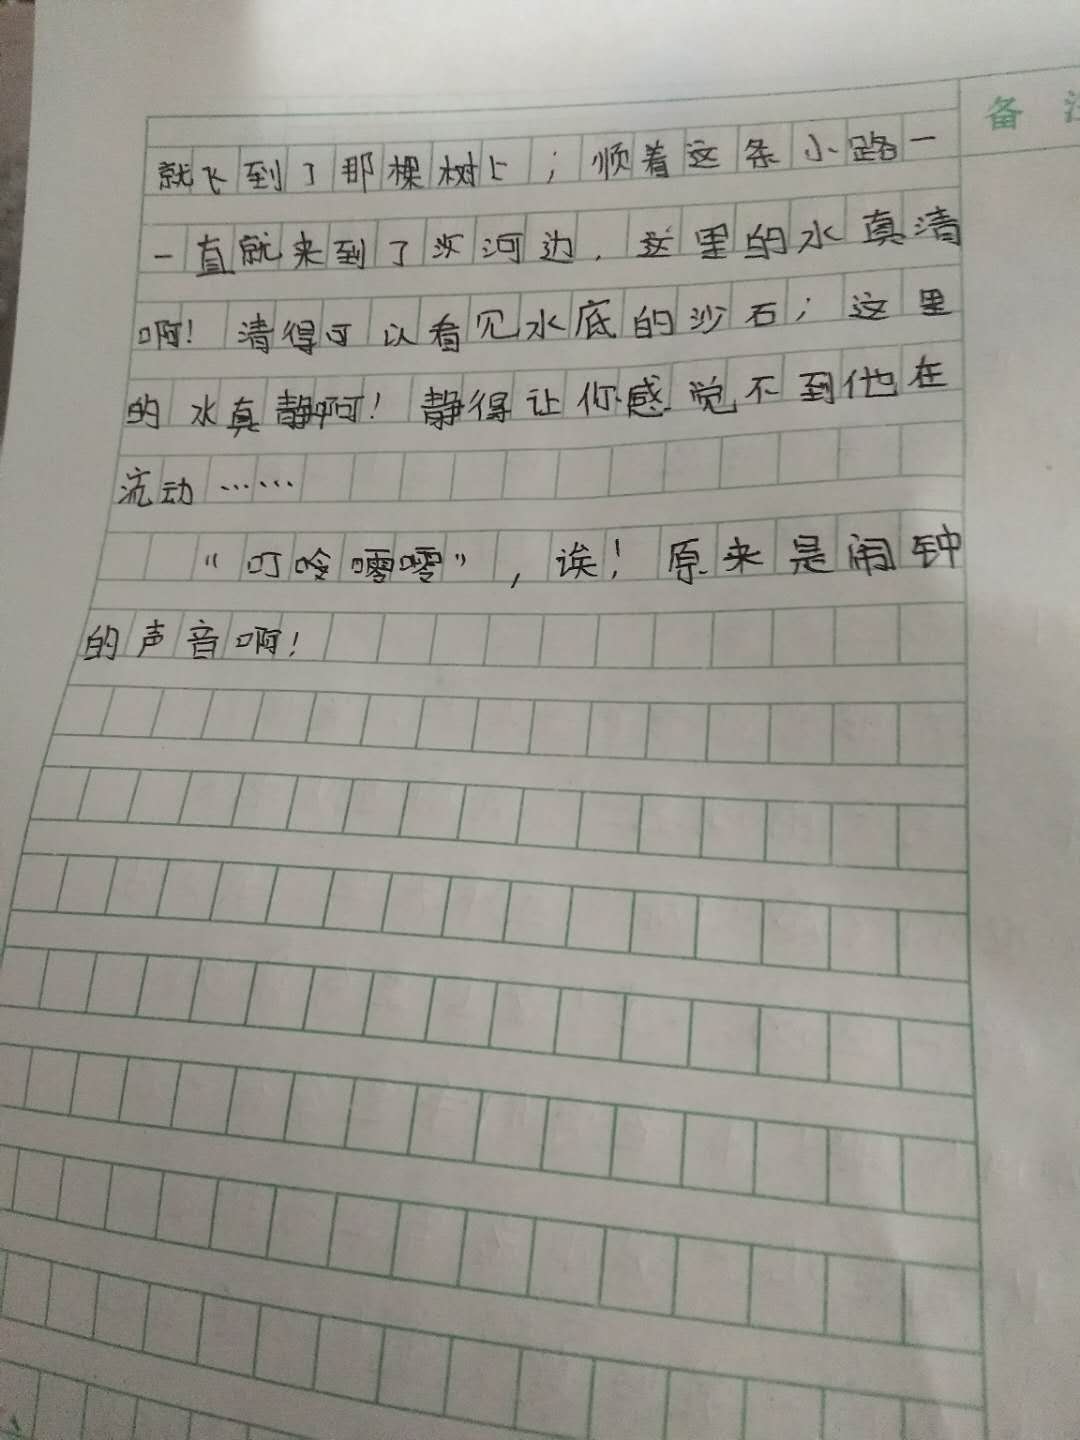 备注
就飞到了那棵树上；顺着这条小路一
一直就来到了汝河边，这里的水真清
啊！清得可以看见水底的沙石；这里
的水真静啊！静得让你感觉不到他在
流动……
“叮呤嘤嘤”，诶！原来是闹钟
的声音啊！